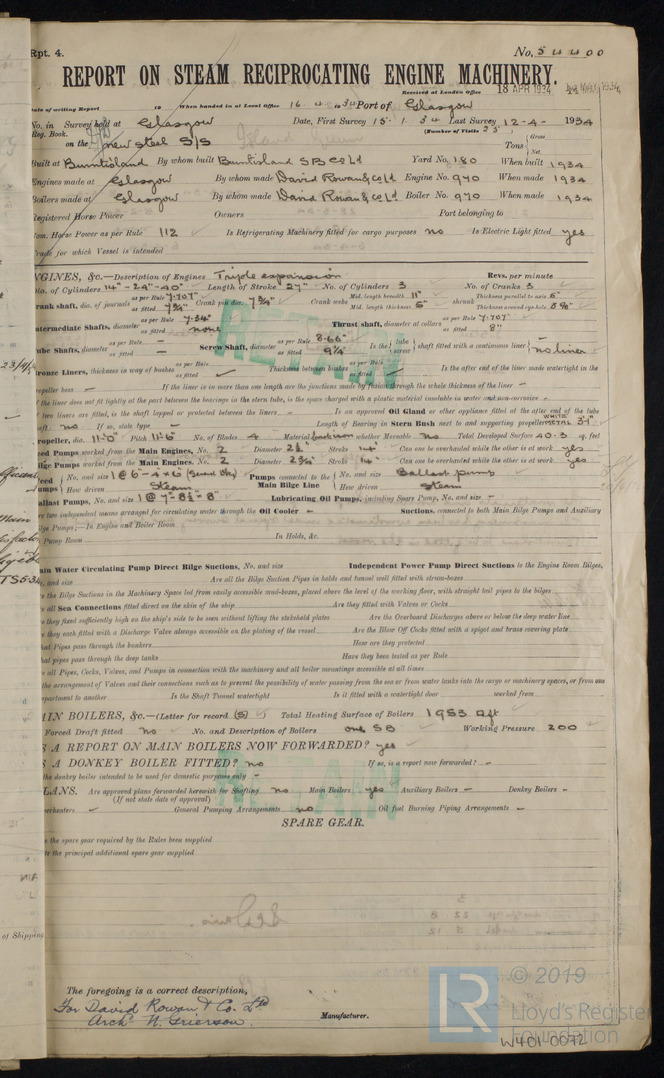 Rpt. 4.
No. 54400
REPORT ON STEAM RECIPROCATING ENGINE MACHINERY.
Received at London Office 18 APR 1934
Date of writing Report 19 When handed in at Local Office 16. 4. 1934 Port of Glasgow
No. in Survey held at Glasgow Date, First Survey 15. 1. 34 Last Survey 12-4- 1934
Reg. Book. (Number of Visits 23)
on the new steel S/S Tons Gross Net
Built at Burntisland By whom built Burntisland S B Co Ld Yard No. 180 When built 1934
Engines made at Glasgow By whom made David Rowan & Co Ld Engine No. 970 When made 1934
Boilers made at Glasgow By whom made David Rowan & Co Ld Boiler No. 970 When made 1934
Registered Horse Power Owners Port belonging to
Nom. Horse Power as per Rule 112 Is Refrigerating Machinery fitted for cargo purposes no Is Electric Light fitted yes
Trade for which Vessel is intended
ENGINES, &c.—Description of Engines Triple expansion Revs. per minute
Dia. of Cylinders 14" - 24" - 40" Length of Stroke 27" No. of Cylinders 3 No. of Cranks 3
Crank shaft, dia. of journals as per Rule 7.707" as fitted 7¾" Crank pin dia. 7¾" Crank webs Mid. length breadth 11" Mid. length thickness 5" shrunk Thickness parallel to axis 5" Thickness around eye-hole
Intermediate Shafts, diameter as per Rule 7.34" as fitted none Thrust shaft, diameter at collars as per Rule 7.707" as fitted 8"
Tube Shafts, diameter as per Rule – as fitted – Screw Shaft, diameter as per Rule 8.66" as fitted 9¼" Is the tube screw shaft fitted with a continuous liner no liner
Bronze Liners, thickness in way of bushes as per Rule as fitted Thickness between bushes as per Rule as fitted Is the after end of the liner made watertight in the
propeller boss – If the liner is in more than one length are the junctions made by fusion through the whole thickness of the liner –
If the liner does not fit tightly at the part between the bearings in the stern tube, is the space charged with a plastic material insoluble in water and non-corrosive –
If two liners are fitted, is the shaft lapped or protected between the liners – Is an approved Oil Gland or other appliance fitted at the after end of the tube
shaft no If so, state type – Length of Bearing in Stern Bush next to and supporting propeller WHITE METAL 3'-1"
Propeller, dia. 11'-0" Pitch 11'-6" No. of Blades 4 Material whether Moveable No Total Developed Surface 40.3 sq. feet
Feed Pumps worked from the Main Engines, No. 2 Diameter 2½ Stroke 14" Can one be overhauled while the other is at work yes
Bilge Pumps worked from the Main Engines, No. 2 Diameter Stroke 14" Can one be overhauled while the other is at work yes
Feed Pumps No. and size 1 @ 6 – 4 x 6 Pumps connected to the Main Bilge Line No. and size Ballast pump
How driven Steam How driven Steam
Ballast Pumps, No. and size 1 @ 7"-8½-8" Lubricating Oil Pumps, including Spare Pump, No. and size –
Are two independent means arranged for circulating water through the Oil Cooler – Suctions, connected to both Main Bilge Pumps and Auxiliary
Bilge Pumps;—In Engine and Boiler Room
Pump Room In Holds, &c.
Main Water Circulating Pump Direct Bilge Suctions, No. and size Independent Power Pump Direct Suctions to the Engine Room Bilges,
No. and size Are all the Bilge Suction Pipes in holds and tunnel well fitted with strum-boxes
Are the Bilge Suctions in the Machinery Space led from easily accessible mud-boxes, placed above the level of the working floor, with straight tail pipes to the bilges
Are all Sea Connections fitted direct on the skin of the ship Are they fitted with Valves or Cocks
Are they fixed sufficiently high on the ship's side to be seen without lifting the stokehold plates Are the Overboard Discharges above or below the deep water line
Are they each fitted with a Discharge Valve always accessible on the plating of the vessel Are the Blow Off Cocks fitted with a spigot and brass covering plate
What Pipes pass through the bunkers How are they protected
What pipes pass through the deep tanks Have they been tested as per Rule
Are all Pipes, Cocks, Valves, and Pumps in connection with the machinery and all boiler mountings accessible at all times
Is the arrangement of Valves and their connections such as to prevent the possibility of water passing from the sea or from water tanks into the cargo or machinery spaces, or from one
compartment to another Is the Shaft Tunnel watertight Is it fitted with a watertight door worked from
MAIN BOILERS, &c.—(Letter for record (S) Total Heating Surface of Boilers 1953 sq ft
Is Forced Draft fitted no No. and Description of Boilers one SB Working Pressure 200
IS A REPORT ON MAIN BOILERS NOW FORWARDED? yes
IS A DONKEY BOILER FITTED? no If so, is a report now forwarded? –
Is the donkey boiler intended to be used for domestic purposes only –
PLANS. Are approved plans forwarded herewith for Shafting no Main Boilers yes Auxiliary Boilers – Donkey Boilers –
(If not state date of approval)
Superheaters General Pumping Arrangements no Oil fuel Burning Piping Arrangements –
SPARE GEAR.
Has the spare gear required by the Rules been supplied
State the principal additional spare gear supplied
RETAIN
RETAIN
of Shipping
The foregoing is a correct description,
For David Rowan & Co. Ltd
Archd. N. Grierson. Manufacturer.
© 2019
LR
Lloyd's Register
Foundation
W401-0072